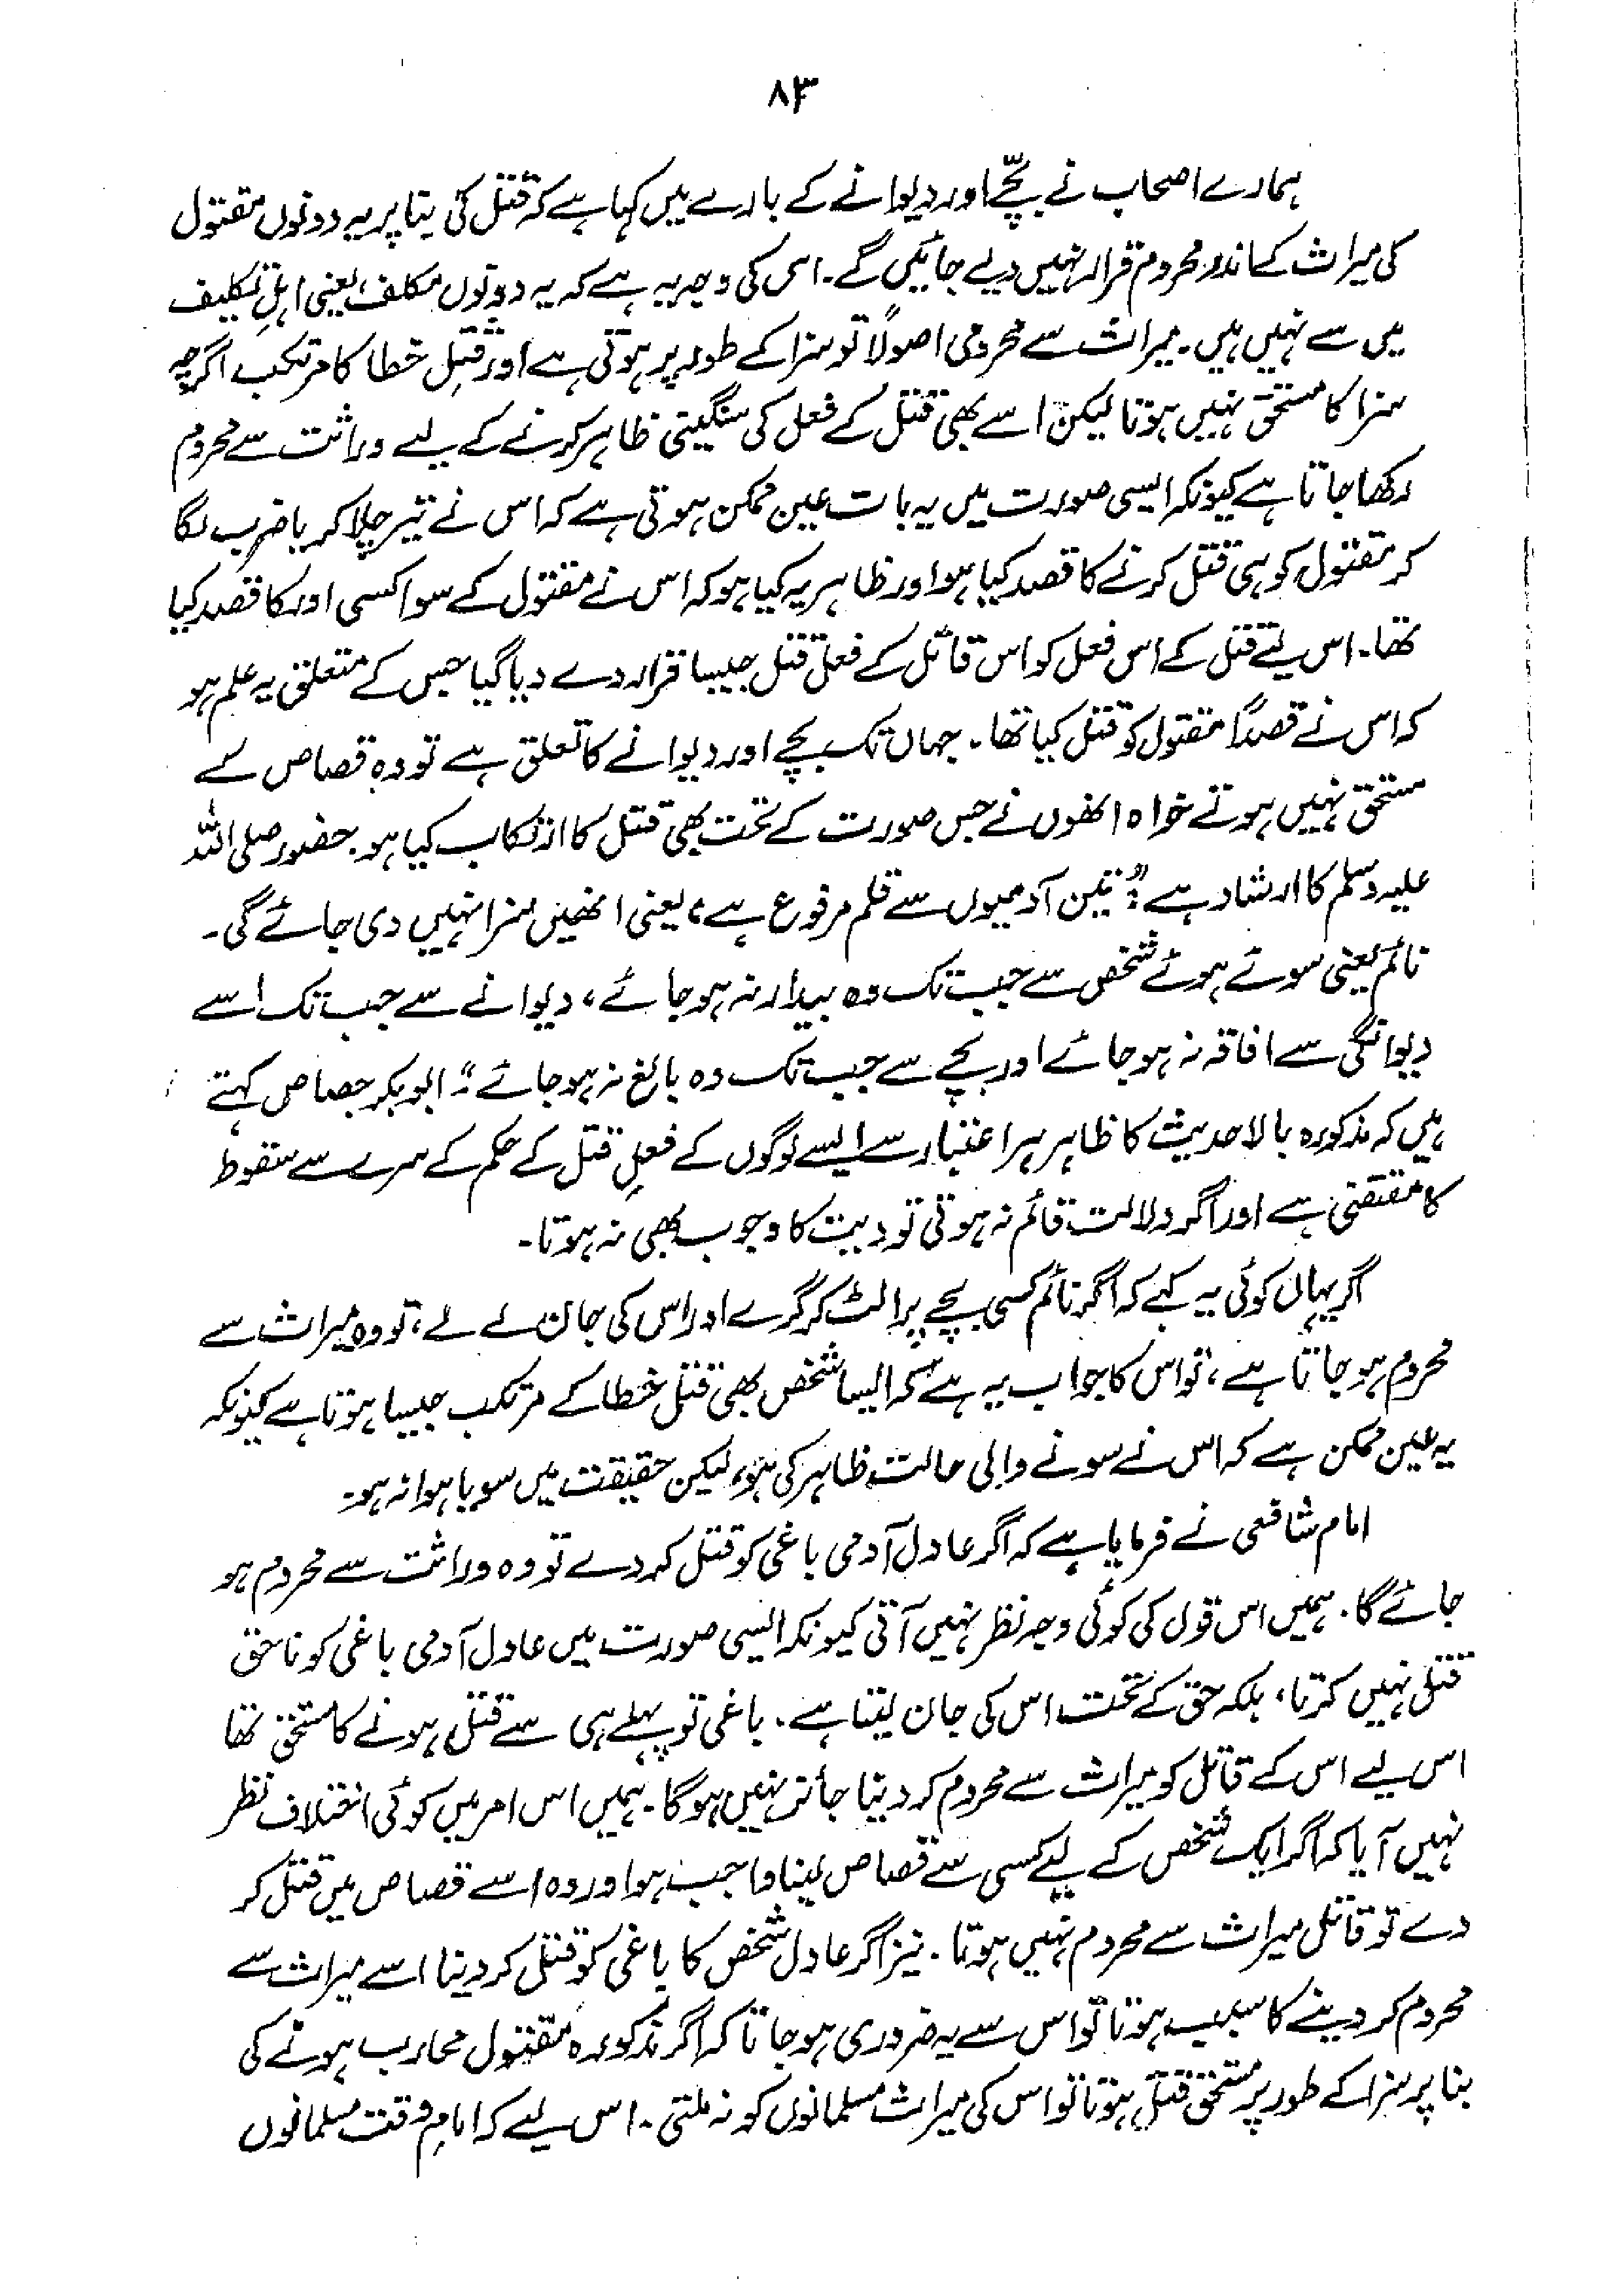 ۸۳
ہمارے اصحاب نے بچے اور دیوانے کے بارے میں کہا ہے کہ قتل کی بنا پر یہ دونوں مقتول
کی میراث کے اندر محروم قرار نہیں دیے جائیں گے۔ اس کی وجہ یہ ہے کہ یہ دونوں مکلف یعنی اہلِ تکلیف
میں سے نہیں ہیں۔ میراث سے محرومی اصولاً تو سزا کے طور پر ہوتی ہے اور قتلِ خطا کا مرتکب اگرچہ
سزا کا مستحق نہیں ہوتا لیکن اسے بھی قتل کے فعل کی سنگینی ظاہر کرنے کے لیے وراثت سے محروم
رکھا جاتا ہے کیونکہ ایسی صورت میں یہ بات عین ممکن ہوتی ہے کہ اس نے تیر چلا کر یا ضرب لگا
کر مقتول کو ہی قتل کرنے کا قصد کیا ہو اور ظاہر یہ کیا ہو کہ اس نے مقتول کے سوا کسی اور کا قصد کیا
تھا۔ اس لئے قتل کے اس فعل کو اس قاتل کے فعلِ قتل جیسا قرار دے دیا گیا جس کے متعلق یہ علم ہو
کہ اس نے قصداً مقتول کو قتل کیا تھا۔ جہاں تک بچے اور دیوانے کا تعلق ہے تو وہ قصاص کے
مستحق نہیں ہوتے خواہ انھوں نے جس صورت کے تحت بھی قتل کا ارتکاب کیا ہو۔ حضور صلی اللہ
علیہ وسلم کا ارشاد ہے: "تین آدمیوں سے قلم مرفوع ہے، یعنی انھیں سزا نہیں دی جائے گی۔
نائم یعنی سوئے ہوئے شخص سے جب تک وہ بیدار نہ ہو جائے، دیوانے سے جب تک اسے
دیوانگی سے افاقہ نہ ہو جائے اور بچے سے جب تک وہ بالغ نہ ہو جائے"۔ ابوبکر جصاص کہتے
ہیں کہ مذکورہ بالا حدیث کا ظاہر ہر اعتبار سے ایسے لوگوں کے فعلِ قتل کے حکم کے سرے سے سقوط
کا مقتضی ہے اور اگر دلالت قائم نہ ہوتی تو دیت کا وجوب بھی نہ ہوتا۔
اگر یہاں کوئی یہ کہے کہ اگر نائم کسی بچے پر الٹ کر گرے اور اس کی جان لے لے، تو وہ میراث سے
محروم ہو جاتا ہے، تو اس کا جواب یہ ہے کہ ایسا شخص بھی قتل خطا کے مرتکب جیسا ہوتا ہے کیونکہ
یہ عین ممکن ہے کہ اس نے سونے والی حالت ظاہر کی ہو، لیکن حقیقت میں سویا ہوا نہ ہو۔
امام شافعی نے فرمایا ہے کہ اگر عادل آدمی باغی کو قتل کر دے تو وہ وراثت سے محروم ہو
جائے گا۔ ہمیں اس قول کی کوئی وجہ نظر نہیں آتی کیونکہ ایسی صورت میں عادل آدمی باغی کو ناحق
قتل نہیں کرتا، بلکہ حق کے تحت اس کی جان لیتا ہے۔ باغی تو پہلے ہی سے قتل ہونے کا مستحق تھا
اس لیے اس کے قاتل کو میراث سے محروم کر دینا جائز نہیں ہوگا۔ ہمیں اس امر میں کوئی اختلاف نظر
نہیں آیا کہ اگر ایک شخص کے لیے کسی سے قصاص لینا واجب ہو اور وہ اسے قصاص میں قتل کر
دے تو قاتل میراث سے محروم نہیں ہوتا۔ نیز اگر عادل شخص کا باغی کو قتل کر دینا اسے میراث سے
محروم کر دینے کا سبب ہوتا تو اس سے یہ ضروری ہو جاتا کہ اگر مذکورہ مقتول محارب ہونے کی
بنا پر سزا کے طور پر مستحق قتل ہوتا تو اس کی میراث مسلمانوں کو نہ ملتی۔ اس لیے کہ امامِ وقت مسلمانوں